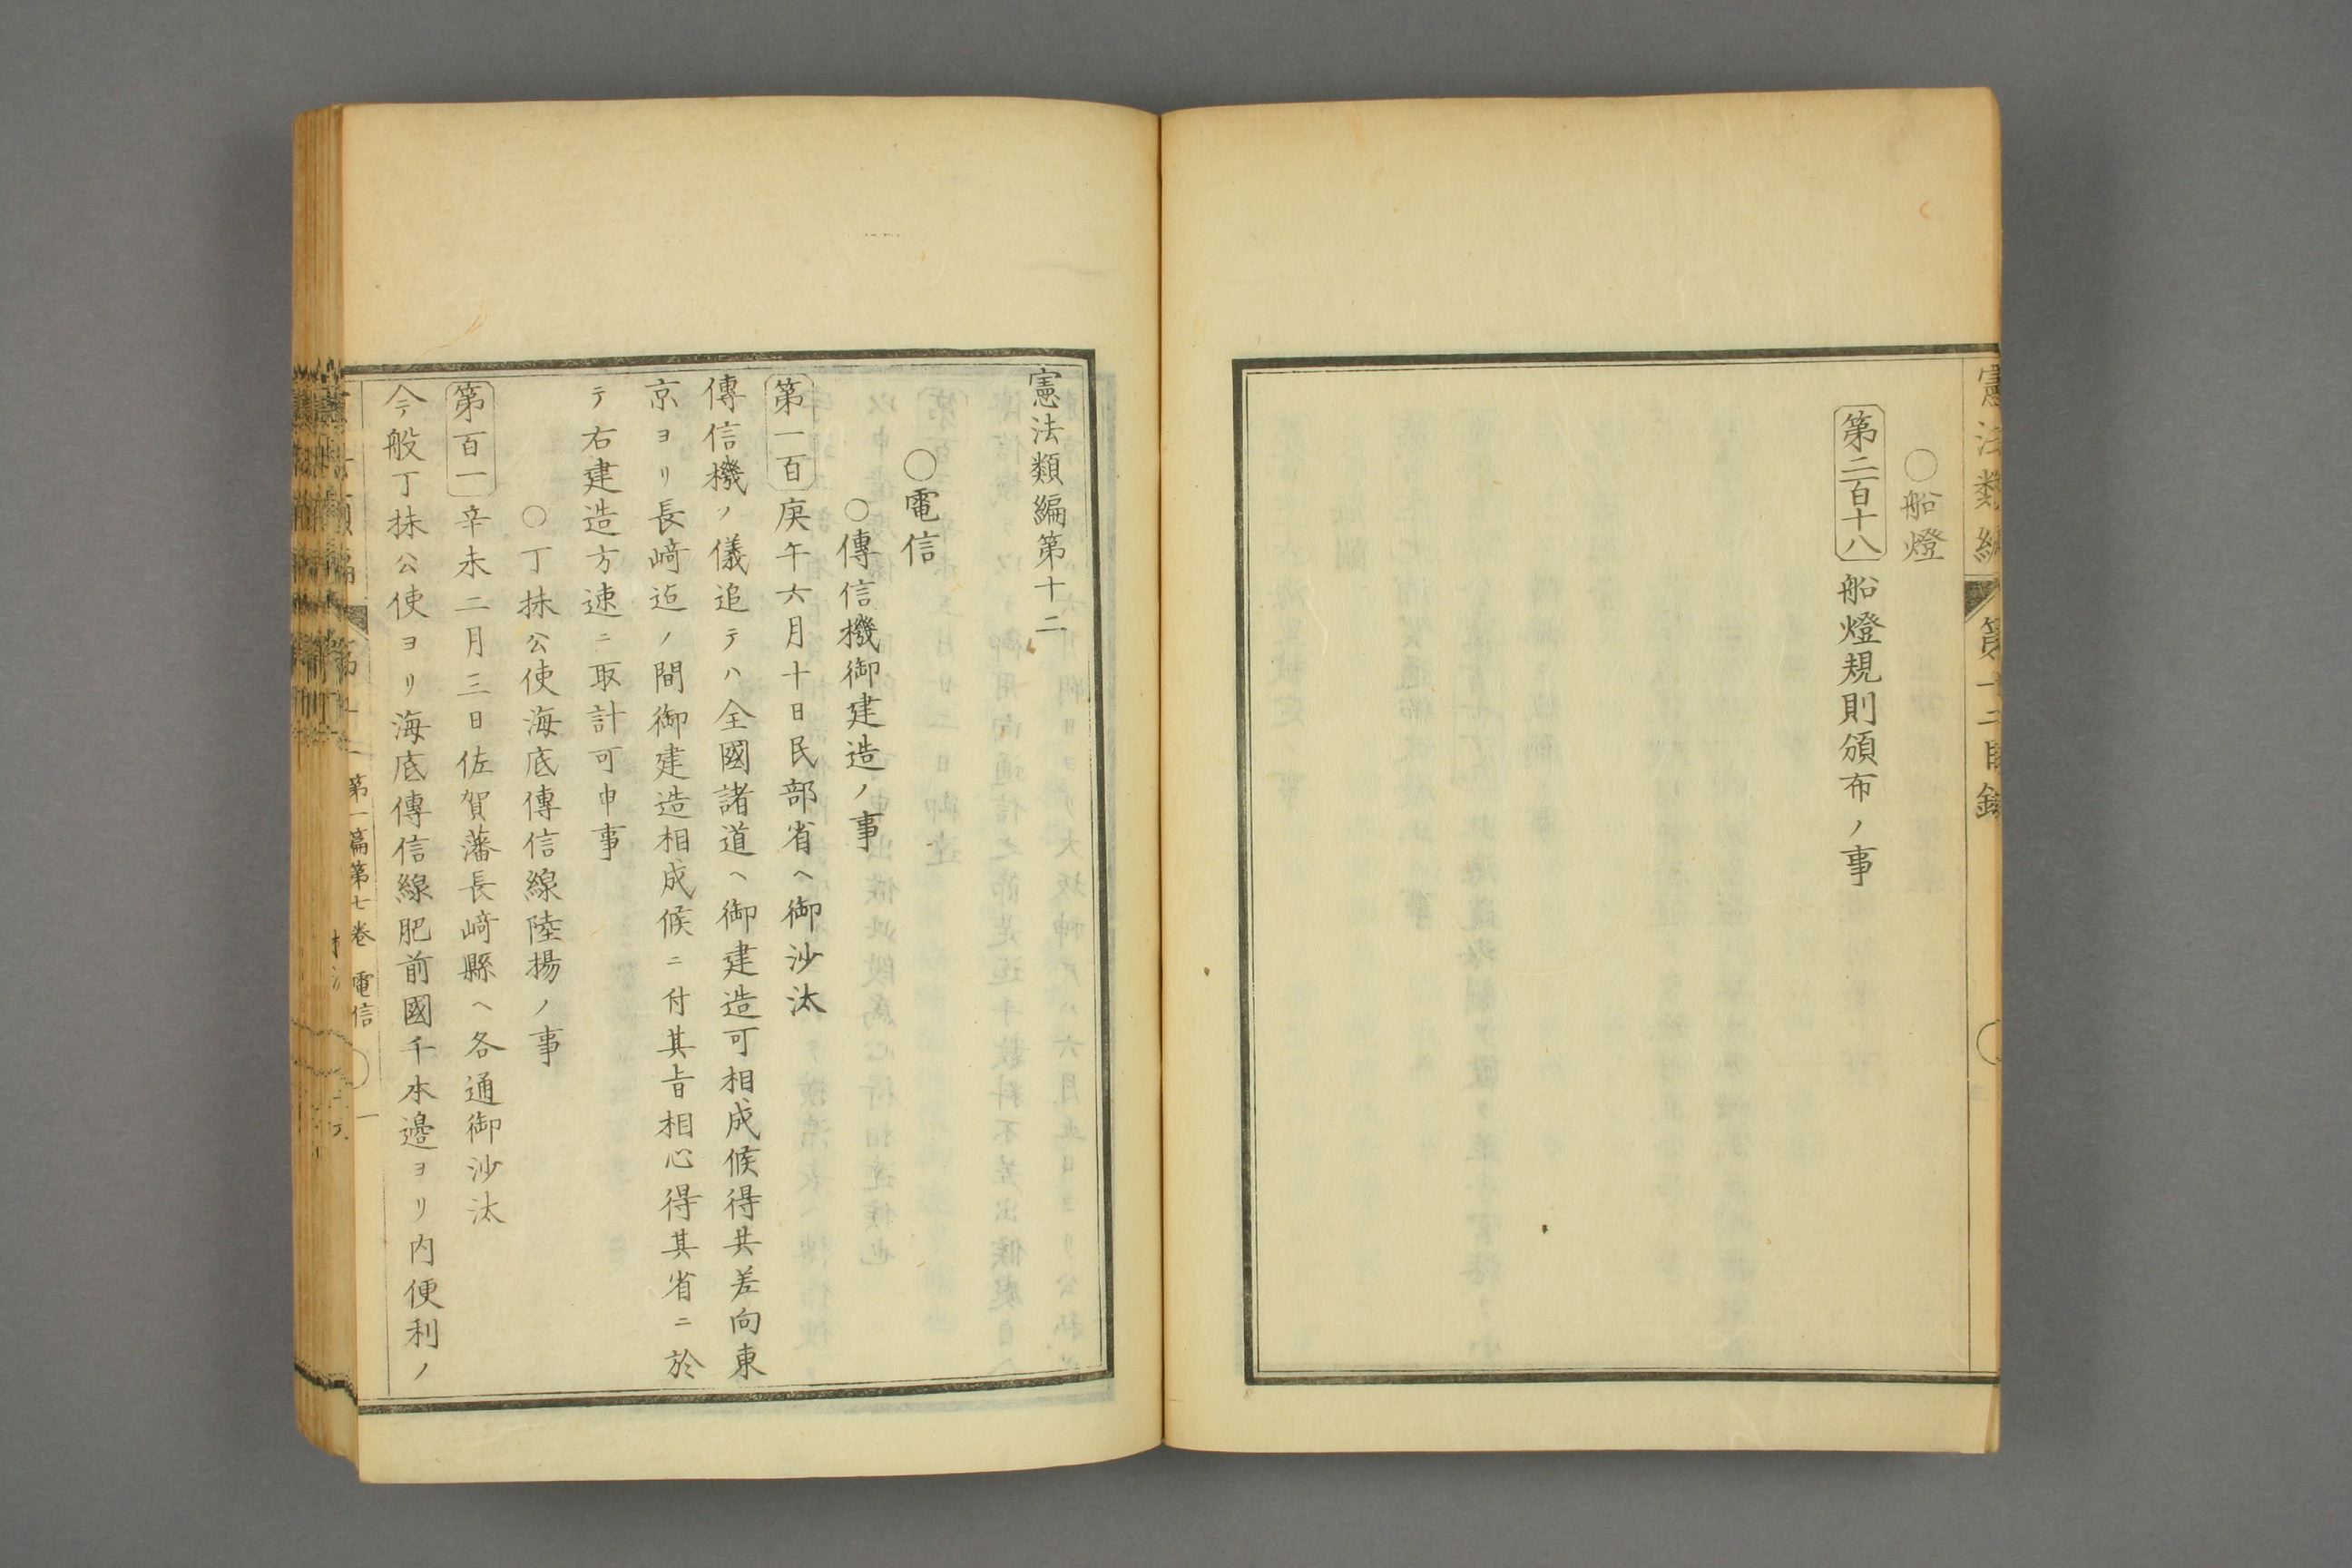 憲法類編 第十二目錄
○船燈
第二百十八 船燈規則頒布ノ事
憲法類編第十二
○電信
○傳信機御建造ノ事
第一百 庚午六月十日民部省ヘ御沙汰
傳信機ノ儀追テハ全國諸道ヘ御建造可相成候得共差向東
京ヨリ長﨑迠ノ間御建造相成候ニ付其旨相心得其省ニ於
テ右建造方速ニ取計可申事
○丁抹公使海底傳信線陸揚ノ事
第百一 辛未二月三日佐賀藩長﨑縣ヘ各通御沙汰
今般丁抹公使ヨリ海底傳信線肥前國千本邉ヨリ内便利ノ
第一篇第七卷 電信 一